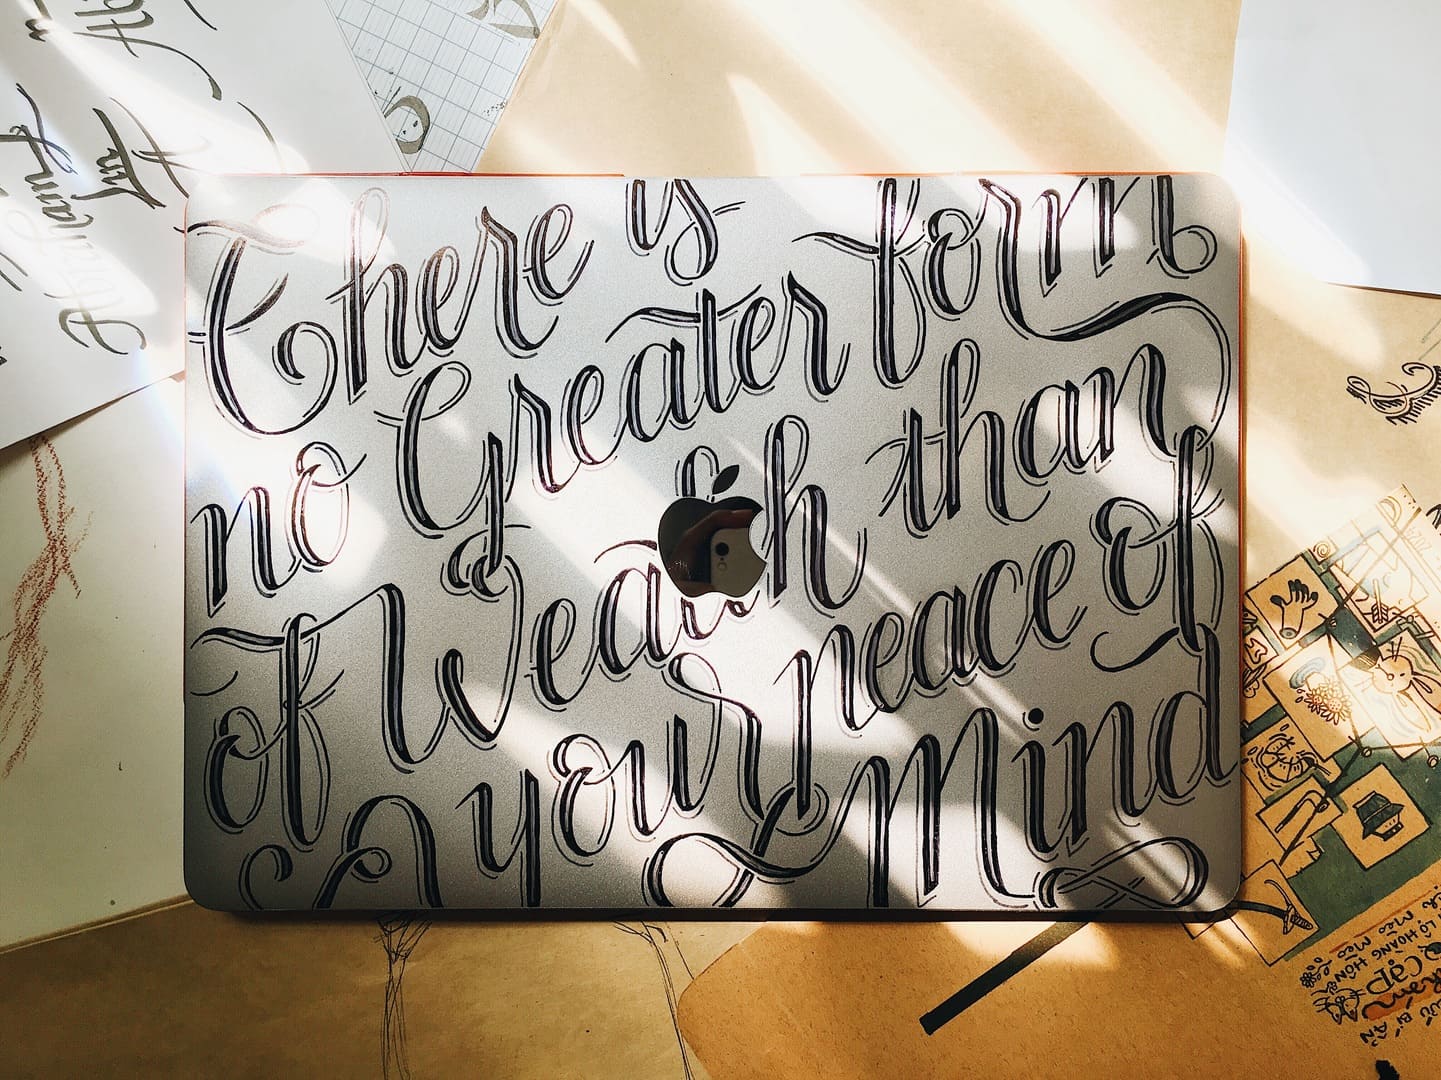 There is
no Greater form
of Wealth than
your peace of
Mind
LỘ HOÀNG HÔN
CẠP
MÈO MÈO